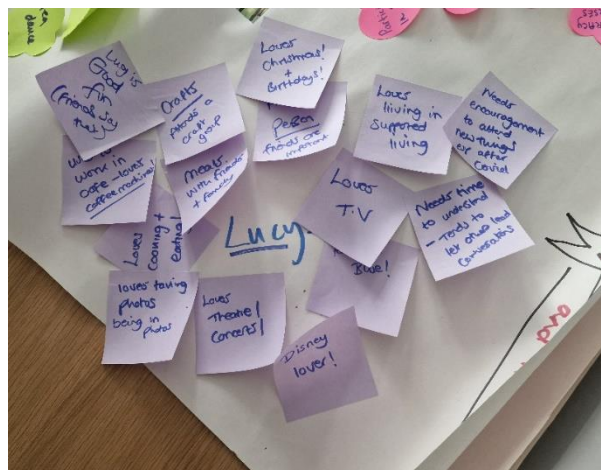 dance
Lucy is
Good
Fun
Crafts
Attends a
craft group
Loves
Christmas!
+
Birthdays!
Person
friends are
important
Loves
living in
supported
living
Needs
encouragement
to attend
new things
after
Covid
work in
cafe - loves
coffee machine!
Meals
with friends
+ family
Loves
T.V
Needs time
to understand
- Tends to
let others lead
conversations
Loves
cooking +
eating!
Lucy
Blue!
loves taking
photos
being in
photos
Loves
Theatre/
Concerts/
Disney
lover!
pro